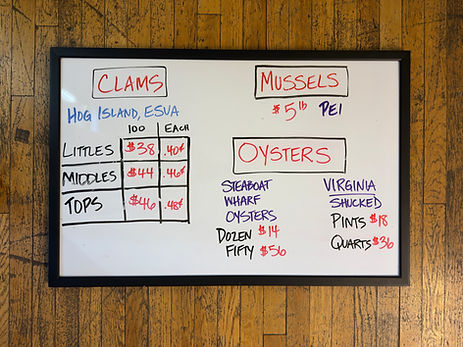 CLAMS
HOG ISLAND, ESVA
100 EACH
LITTLES $38 .40¢
MIDDLES $44 .46¢
TOPS $46 .48¢
MUSSELS
$5 lb PEI
OYSTERS
STEABOAT
WHARF
OYSTERS
DOZEN $14
FIFTY $56
VIRGINIA
SHUCKED
PINTS $18
QUARTS $36